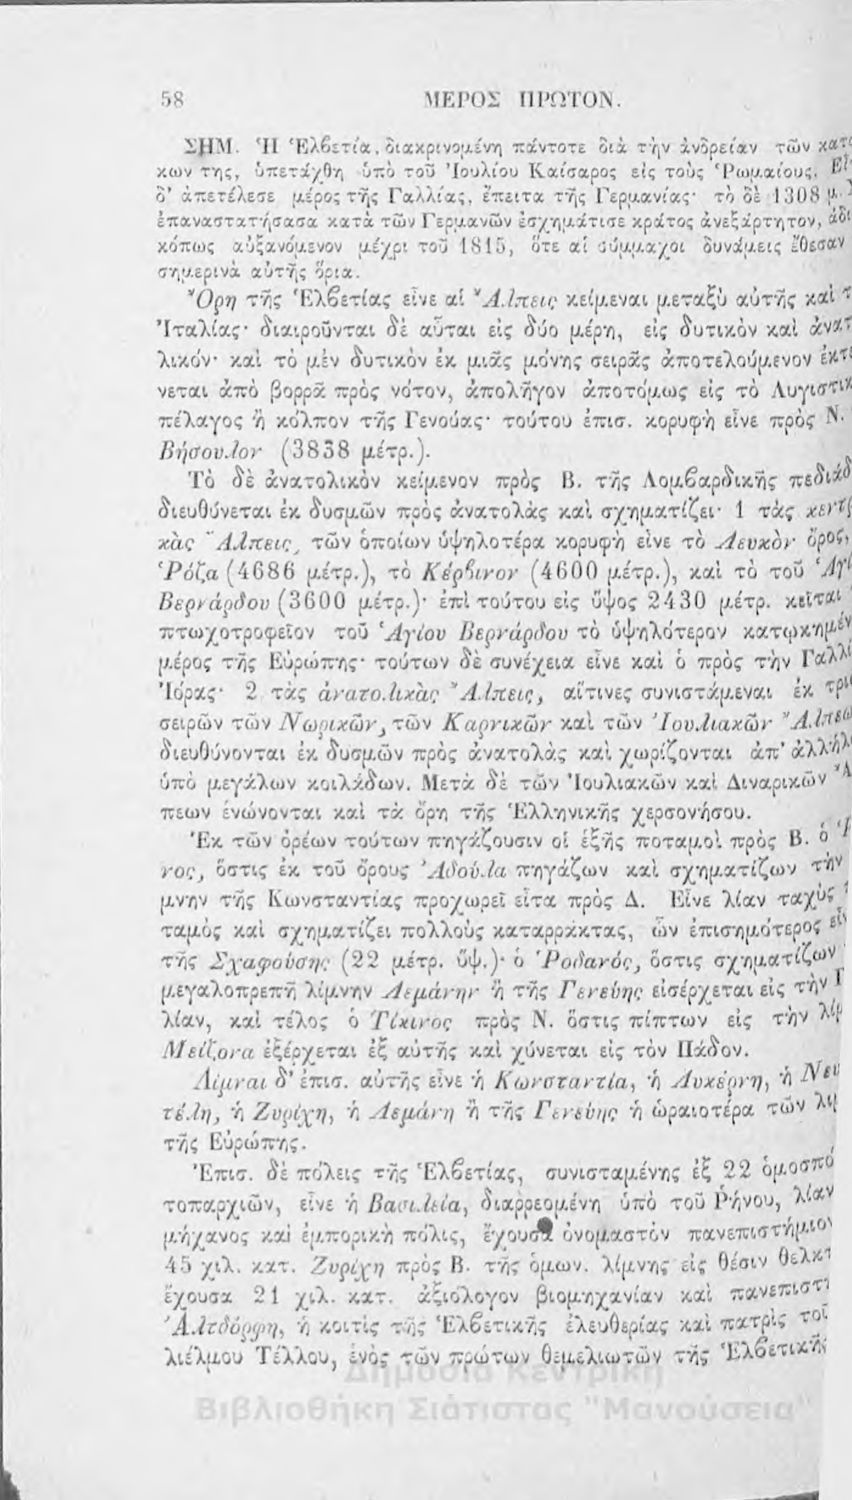 58 ΜΕΡΟΣ ΠΡΩΤΟΝ.
ΣΗΜ. Ἡ Ἑλβετία, διακρινομένη πάντοτε διὰ τὴν ἀνδρείαν τῶν κατ
κων της, ὑπετάχθη ὑπὸ τοῦ Ἰουλίου Καίσαρος εἰς τοὺς Ῥωμαίους.
δ’ ἀπετέλεσε μέρος τῆς Γαλλίας, ἔπειτα τῆς Γερμανίας· τὸ δὲ 1308 μ.
ἐπαναστατήσασα κατὰ τῶν Γερμανῶν ἐσχημάτισε κράτος ἀνεξάρτητον, ἀδι
κόπως αὐξανόμενον μέχρι τοῦ 1815, ὅτε αἱ σύμμαχοι δυνάμεις ἔθεσαν
σημερινὰ αὐτῆς ὅρια.
Ὄρη τῆς Ἑλβετίας εἶνε αἱ Ἄλπεις κείμεναι μεταξὺ αὐτῆς καὶ τ
Ἰταλίας· διαιροῦνται δὲ αὗται εἰς δύο μέρη, εἰς δυτικὸν καὶ ἀνατ
λικόν· καὶ τὸ μὲν δυτικὸν ἐκ μιᾶς μόνης σειρᾶς ἀποτελούμενον ἐκτε
νεται ἀπὸ βορρᾶ πρὸς νότον, ἀπολῆγον ἀποτόμως εἰς τὸ Λυγιστικ
πέλαγος ἢ κόλπον τῆς Γενούας· τούτου ἐπισ. κορυφὴ εἶνε πρὸς Ν.
Βήσουλον (3838 μέτρ.).
Τὸ δὲ ἀνατολικὸν κείμενον πρὸς Β. τῆς Λομβαρδικῆς πεδιάδ
διευθύνεται ἐκ δυσμῶν πρὸς ἀνατολὰς καὶ σχηματίζει· 1 τὰς κεντρ
κὰς Ἄλπεις, τῶν ὁποίων ὑψηλοτέρα κορυφὴ εἶνε τὸ Λευκὸν ὄρος,
Ῥόζα (4686 μέτρ.), τὸ Κέρβινον (4600 μέτρ.), καὶ τὸ τοῦ Ἁγί
Βερνάρδου (3600 μέτρ.)· ἐπὶ τούτου εἰς ὕψος 2430 μέτρ. κεῖται
πτωχοτροφεῖον τοῦ Ἁγίου Βερνάρδου τὸ ὑψηλότερον κατῳκημέν
μέρος τῆς Εὐρώπης· τούτων δὲ συνέχεια εἶνε καὶ ὁ πρὸς τὴν Γαλλί
Ἰόρας· 2 τὰς ἀνατολικὰς Ἄλπεις, αἵτινες συνιστάμεναι ἐκ τρι
σειρῶν τῶν Νωρικῶν, τῶν Καρνικῶν καὶ τῶν Ἰουλιακῶν Ἄλπεω
διευθύνονται ἐκ δυσμῶν πρὸς ἀνατολὰς καὶ χωρίζονται ἀπ’ ἀλλήλ
ὑπὸ μεγάλων κοιλάδων. Μετὰ δὲ τῶν Ἰουλιακῶν καὶ Διναρικῶν Ἄ
πεων ἑνώνονται καὶ τὰ ὄρη τῆς Ἑλληνικῆς χερσονήσου.
Ἐκ τῶν ὀρέων τούτων πηγάζουσιν οἱ ἑξῆς ποταμοὶ πρὸς Β. ὁ Ῥ
νος, ὅστις ἐκ τοῦ ὄρους Ἀδούλα πηγάζων καὶ σχηματίζων τὴν
μνην τῆς Κωνσταντίας προχωρεῖ εἶτα πρὸς Δ. Εἶνε λίαν ταχὺς
ταμὸς καὶ σχηματίζει πολλοὺς καταρράκτας, ὧν ἐπισημότερος εἶν
τῆς Σχαφούσης (22 μέτρ. ὕψ.)· ὁ Ῥοδανός, ὅστις σχηματίζων
μεγαλοπρεπῆ λίμνην Λεμάνην ἢ τῆς Γενεύης εἰσέρχεται εἰς τὴν Γ
λίαν, καὶ τέλος ὁ Τίκινος πρὸς Ν. ὅστις πίπτων εἰς τὴν λίμ
Μείζονα ἐξέρχεται ἐξ αὐτῆς καὶ χύνεται εἰς τὸν Πάδον.
Λίμναι δ’ ἐπισ. αὐτῆς εἶνε ἡ Κωνσταντία, ἡ Λυκέρνη, ἡ Νευ
τέλη, ἡ Ζυρίχη, ἡ Λεμάνη ἢ τῆς Γενεύης ἡ ὡραιοτέρα τῶν λιμ
τῆς Εὐρώπης.
Ἐπισ. δὲ πόλεις τῆς Ἑλβετίας, συνισταμένης ἐξ 22 ὁμοσπό
τοπαρχιῶν, εἶνε ἡ Βασιλεία, διαρρεομένη ὑπὸ τοῦ Ῥήνου, λίαν
μήχανος καὶ ἐμπορικὴ πόλις, ἔχουσα ὀνομαστὸν πανεπιστήμιον
45 χιλ. κατ. Ζυρίχη πρὸς Β. τῆς ὁμων. λίμνης εἰς θέσιν θελκτ
ἔχουσα 21 χιλ. κατ. ἀξιόλογον βιομηχανίαν καὶ πανεπιστ
Ἀλτδόρφη, ἡ κοιτὶς τῆς Ἑλβετικῆς ἐλευθερίας καὶ πατρὶς τοῦ
λιέλμου Τέλλου, ἑνὸς τῶν πρώτων θεμελιωτῶν τῆς Ἑλβετικῆς
Δημόσια Κεντρική
Βιβλιοθήκη Σιάτιστας "Μανούσεια"